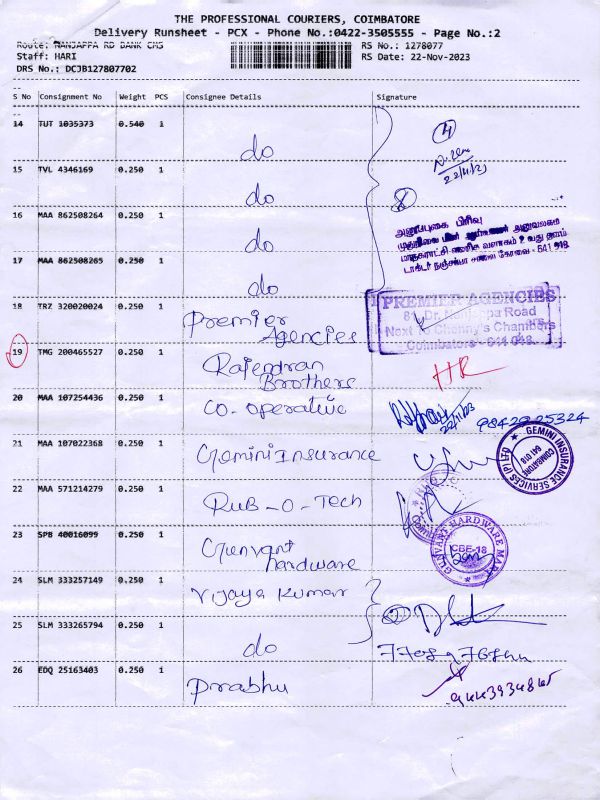 THE PROFESSIONAL COURIERS, COIMBATORE
Delivery Runsheet - PCX - Phone No.:0422-3505555 - Page No.:2
Route: NANJAPPA RD BANK CMS
RS No.: 1278077
Staff: HARI
RS Date: 22-Nov-2023
DRS No.: DCJB127807702
S No Consignment No Weight PCS Consignee Details Signature
14 TUT 1035373 0.540 1 do
4
22/11/23
15 TVL 4346169 0.250 1 do
8
16 MAA 862508264 0.250 1 do
அனுப்புகை பிரிவு
17 MAA 862508265 0.250 1 do
டாக்டர் நஞ்சப்பா சாலை கோவை - 641 018.
18 TRZ 320020024 0.250 1 Premier Agencies
PREMIER AGENCIES
81, Dr. Nanjappa Road
Next To Chenny's Chambers
Coimbatore - 641 018.
19 TMG 200465527 0.250 1 Rajendran Brothers
HR
20 MAA 107254436 0.250 1 Co-operative
22/11/23
9842925324
21 MAA 107022368 0.250 1 Gemini Insurance
GEMINI INSURANCE SERVICES (P) LTD
COIMBATORE
641 018
22 MAA 571214279 0.250 1 Rub-O-Tech
23 SPB 40016099 0.250 1 Gunvant hardware
GUNVANT HARDWARE MART
CBE-18
24 SLM 333257149 0.250 1 Vijaya Kumar
2
25 SLM 333265794 0.250 1 do
26 EDQ 25163403 0.250 1 Prabhu